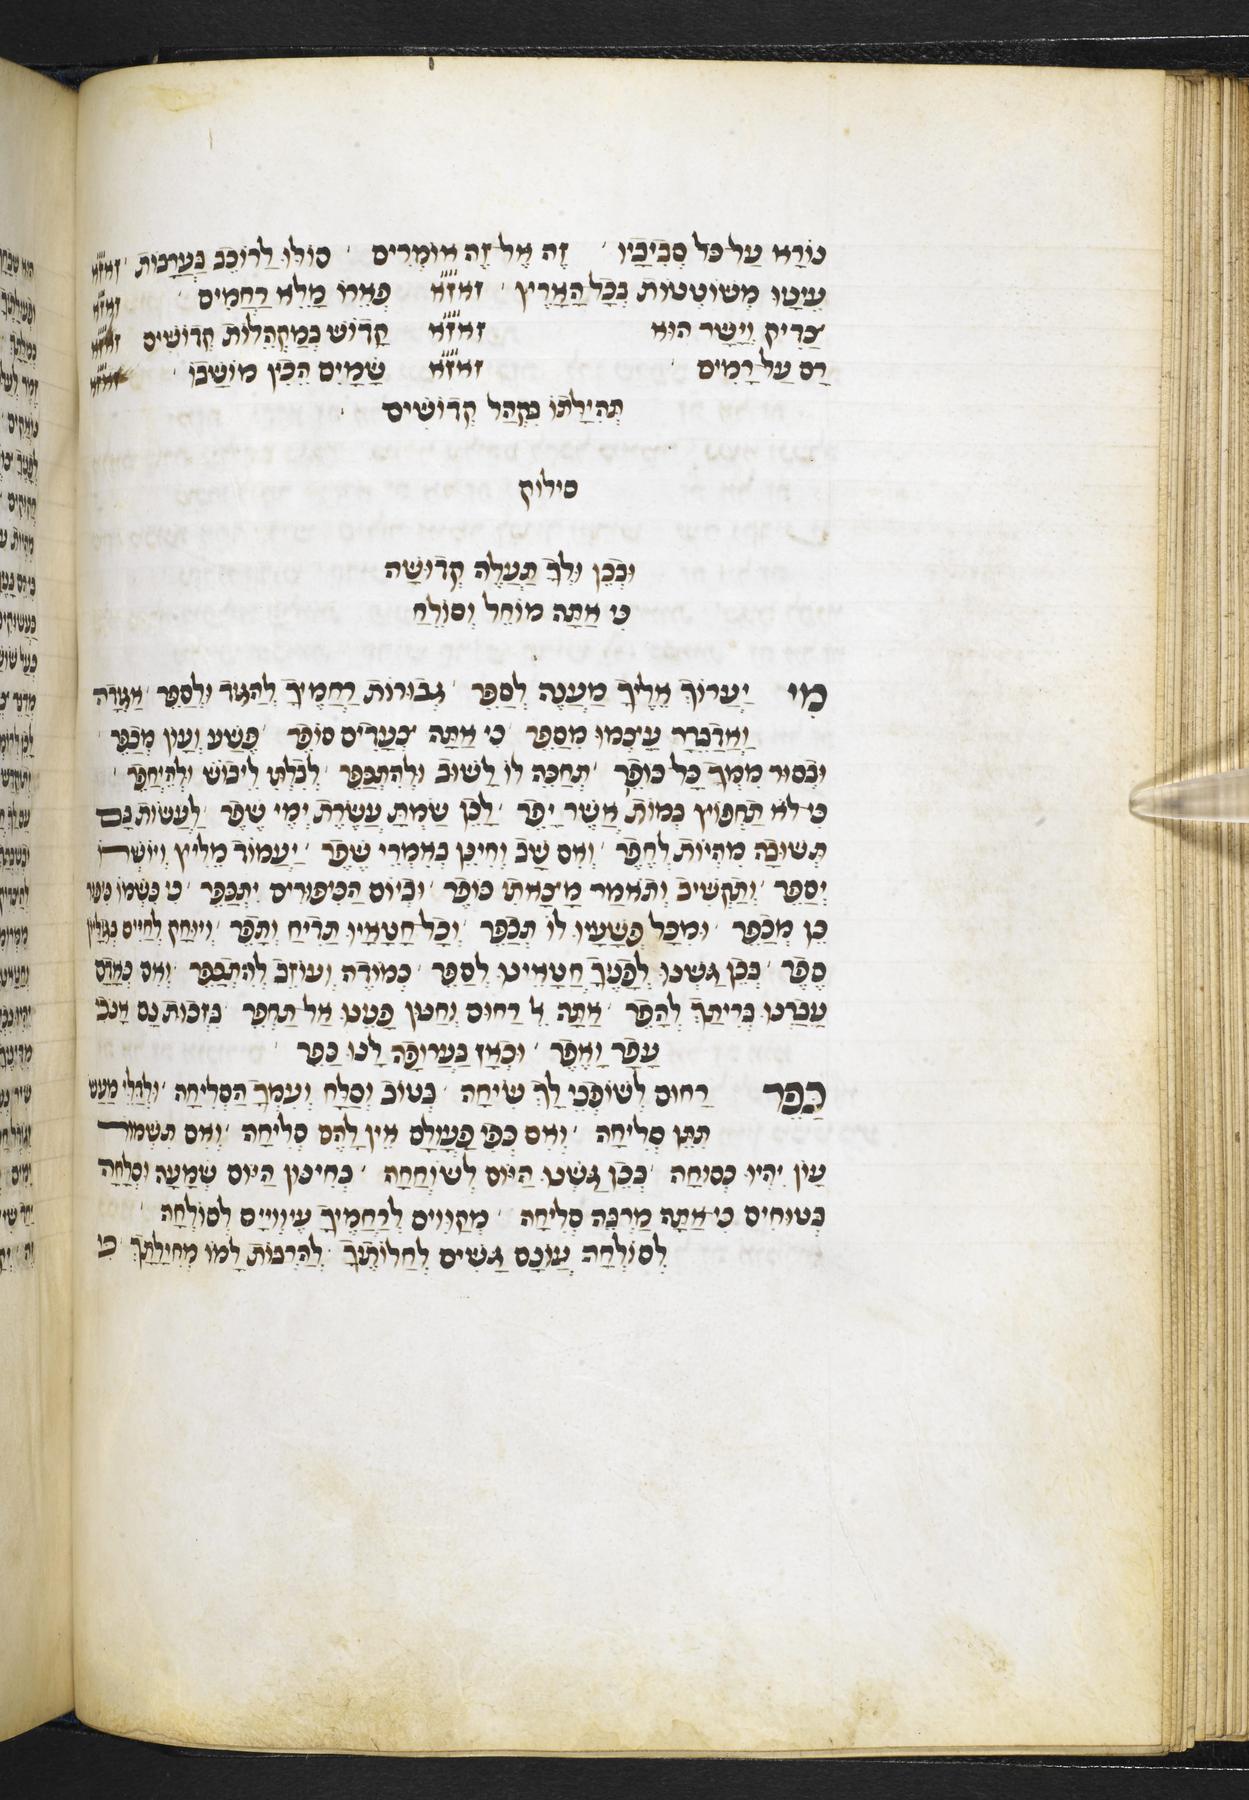 נוֹרָא עַל כָּל סְבִיבָיו זֶה אֶל זֶה אוֹמְרִים סוֹלּוּ לָרוֹכֵב בָּעֲרָבוֹת זאזא
עֵינָיו מְשׁוֹטְטוֹת בְּכָל הָאָרֶץ זאזא פְּאֵרוֹ מָלֵא רַחֲמִים זאזא
צַדִּיק וְיָשָׁר הוּא זאזא קָדוֹשׁ בְּמַקְהֲלוֹת קְדוֹשִׁים זאזא
רָם עַל רָמִים זאזא שָׁמַיִם הֵכִין מוֹשָׁבוֹ זאזא
תְּהִילָתוֹ בִּקְהַל קְדוֹשִׁים
סילוק
וּבְכֵן וּלְךָ תַעֲלֶה קְדוּשָׁה
כִּי אַתָּה מוֹחֵל וְסוֹלֵחַ
מִי יַעֲרוֹךְ אֵלֶיךָ מַעֲנֶה לְסַפֵּר גְּבוּרוֹת רַחֲמֶיךָ לְהַגֵּד וּלְסַפֵּר אַגִּידָה
וַאֲדַבֵּרָה עָצְמוּ מִסַּפֵּר כִּי אַתָּה צְעָדִים סוֹפֵר פֶּשַׁע וְעָוֹן מְכַפֵּר
וּבְסוּר מִמְּךָ כָּל כּוֹפֵר תְּחַכֶּה לוֹ לָשׁוּב וּלְהִתְכַּפֵּר לְבִלְתִּי לֵיבוֹשׁ וּלְהֵיחָפֵר
כִּי לֹא תַחְפּוֹץ בְּמוֹת אֲשֶׁר יָפֵר לָכֵן שַׂמְתָּ עֲשֶׂרֶת יְמֵי שֶׁפֶר לַעֲשׂוֹת בָּם
תְּשׁוּבָה מִהְיוֹת לְחֶפֶר וְאִם שָׁב וְחִינֵּן בְּאִמְרֵי שֶׁפֶר יַעֲמוֹד מֵלִיץ וְיוֹשְׁרוֹ
יְסַפֵּר וְתַקְשִׁיב וְתֹאמַר מָצָאתִי כוֹפֶר וּבְיוֹם הַכִּיפּוּרִים יִתְכַּפֵּר כִּי כִּשְׁמוֹ כיפור
כֵּן מְכַפֵּר וּמִכָּל פְּשָׁעָיו לוֹ תְכַפֵּר וְכָל חֲטָאָיו תַּדִּיחַ וְתָפֵר וְיוּחַק לְחַיִּים בְּגִלְיוֹן
סֵפֶר בְּכֵן גַּשְׁנוּ לְפָנֶיךָ חֲטָאֵינוּ לְסַפֵּר כְּמוֹדֶה וְעוֹזֵב לְהִתְכַּפֵּר וְאִם כְּאָדָם
עָבַרְנוּ בְּרִיתְךָ לְהָפֵר אַתָּה אֵל רַחוּם וְחַנּוּן פָּנֵינוּ אַל תַּחְפֵּר בִּזְכוּת נָם אָנֹכִי
עָפָר וָאֵפֶר וּכְאָז בַּעֲרוּפָה לָנוּ כַּפֵּר
כַּפֵּר רַחוּם לְשׁוֹפְכֵי לָךְ שִׂיחָה כְּטוֹב וְסַלָּח וְעִמְּךָ הַסְּלִיחָה וּלְדַלֵּי מַעַשׂ
תִּתֵּן סְלִיחָה וְאִם כְּפִי פָעֳלָם אֵין לָהֶם סְלִיחָה וְאִם תִּשְׁמוֹר
עָוֹן יִהְיוּ כְּסוּחָה בְּכֵן גַּשְׁנוּ הַיּוֹם לְשׁוֹחֲחָה בְּחִינּוּן הַיּוֹם שְׁמָעָה וּסְלָחָה
בְּטוּחִים כִּי אַתָּה מַרְבֶּה סְלִיחָה מְקַוִּוים לְרַחֲמֶיךָ עֲיֵנוָוִיִּם לְסוֹלְחָה
לְסוֹלְחָה עֲוֹנָם גָּשִׁים לְחַלּוֹתֶךָ לְהַרְבּוֹת לָמוֹ מְחִילָתֶךָ כִּי